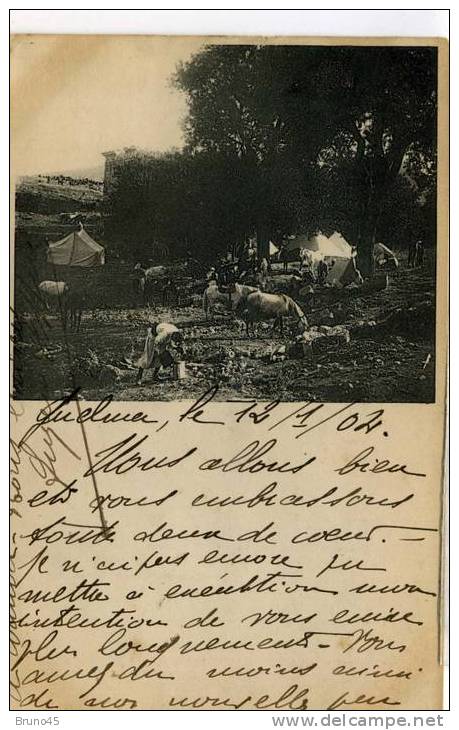 Guelma, le 12/1/02.
Nous allons bien
et vous embrassons
toute deux de cœur. —
Je n'ai pas encore pu
mettre à exécution mon
intention de vous écrire
plus longuement. Vous
aurez du moins ainsi
de nos nouvelles peu
Bruno45